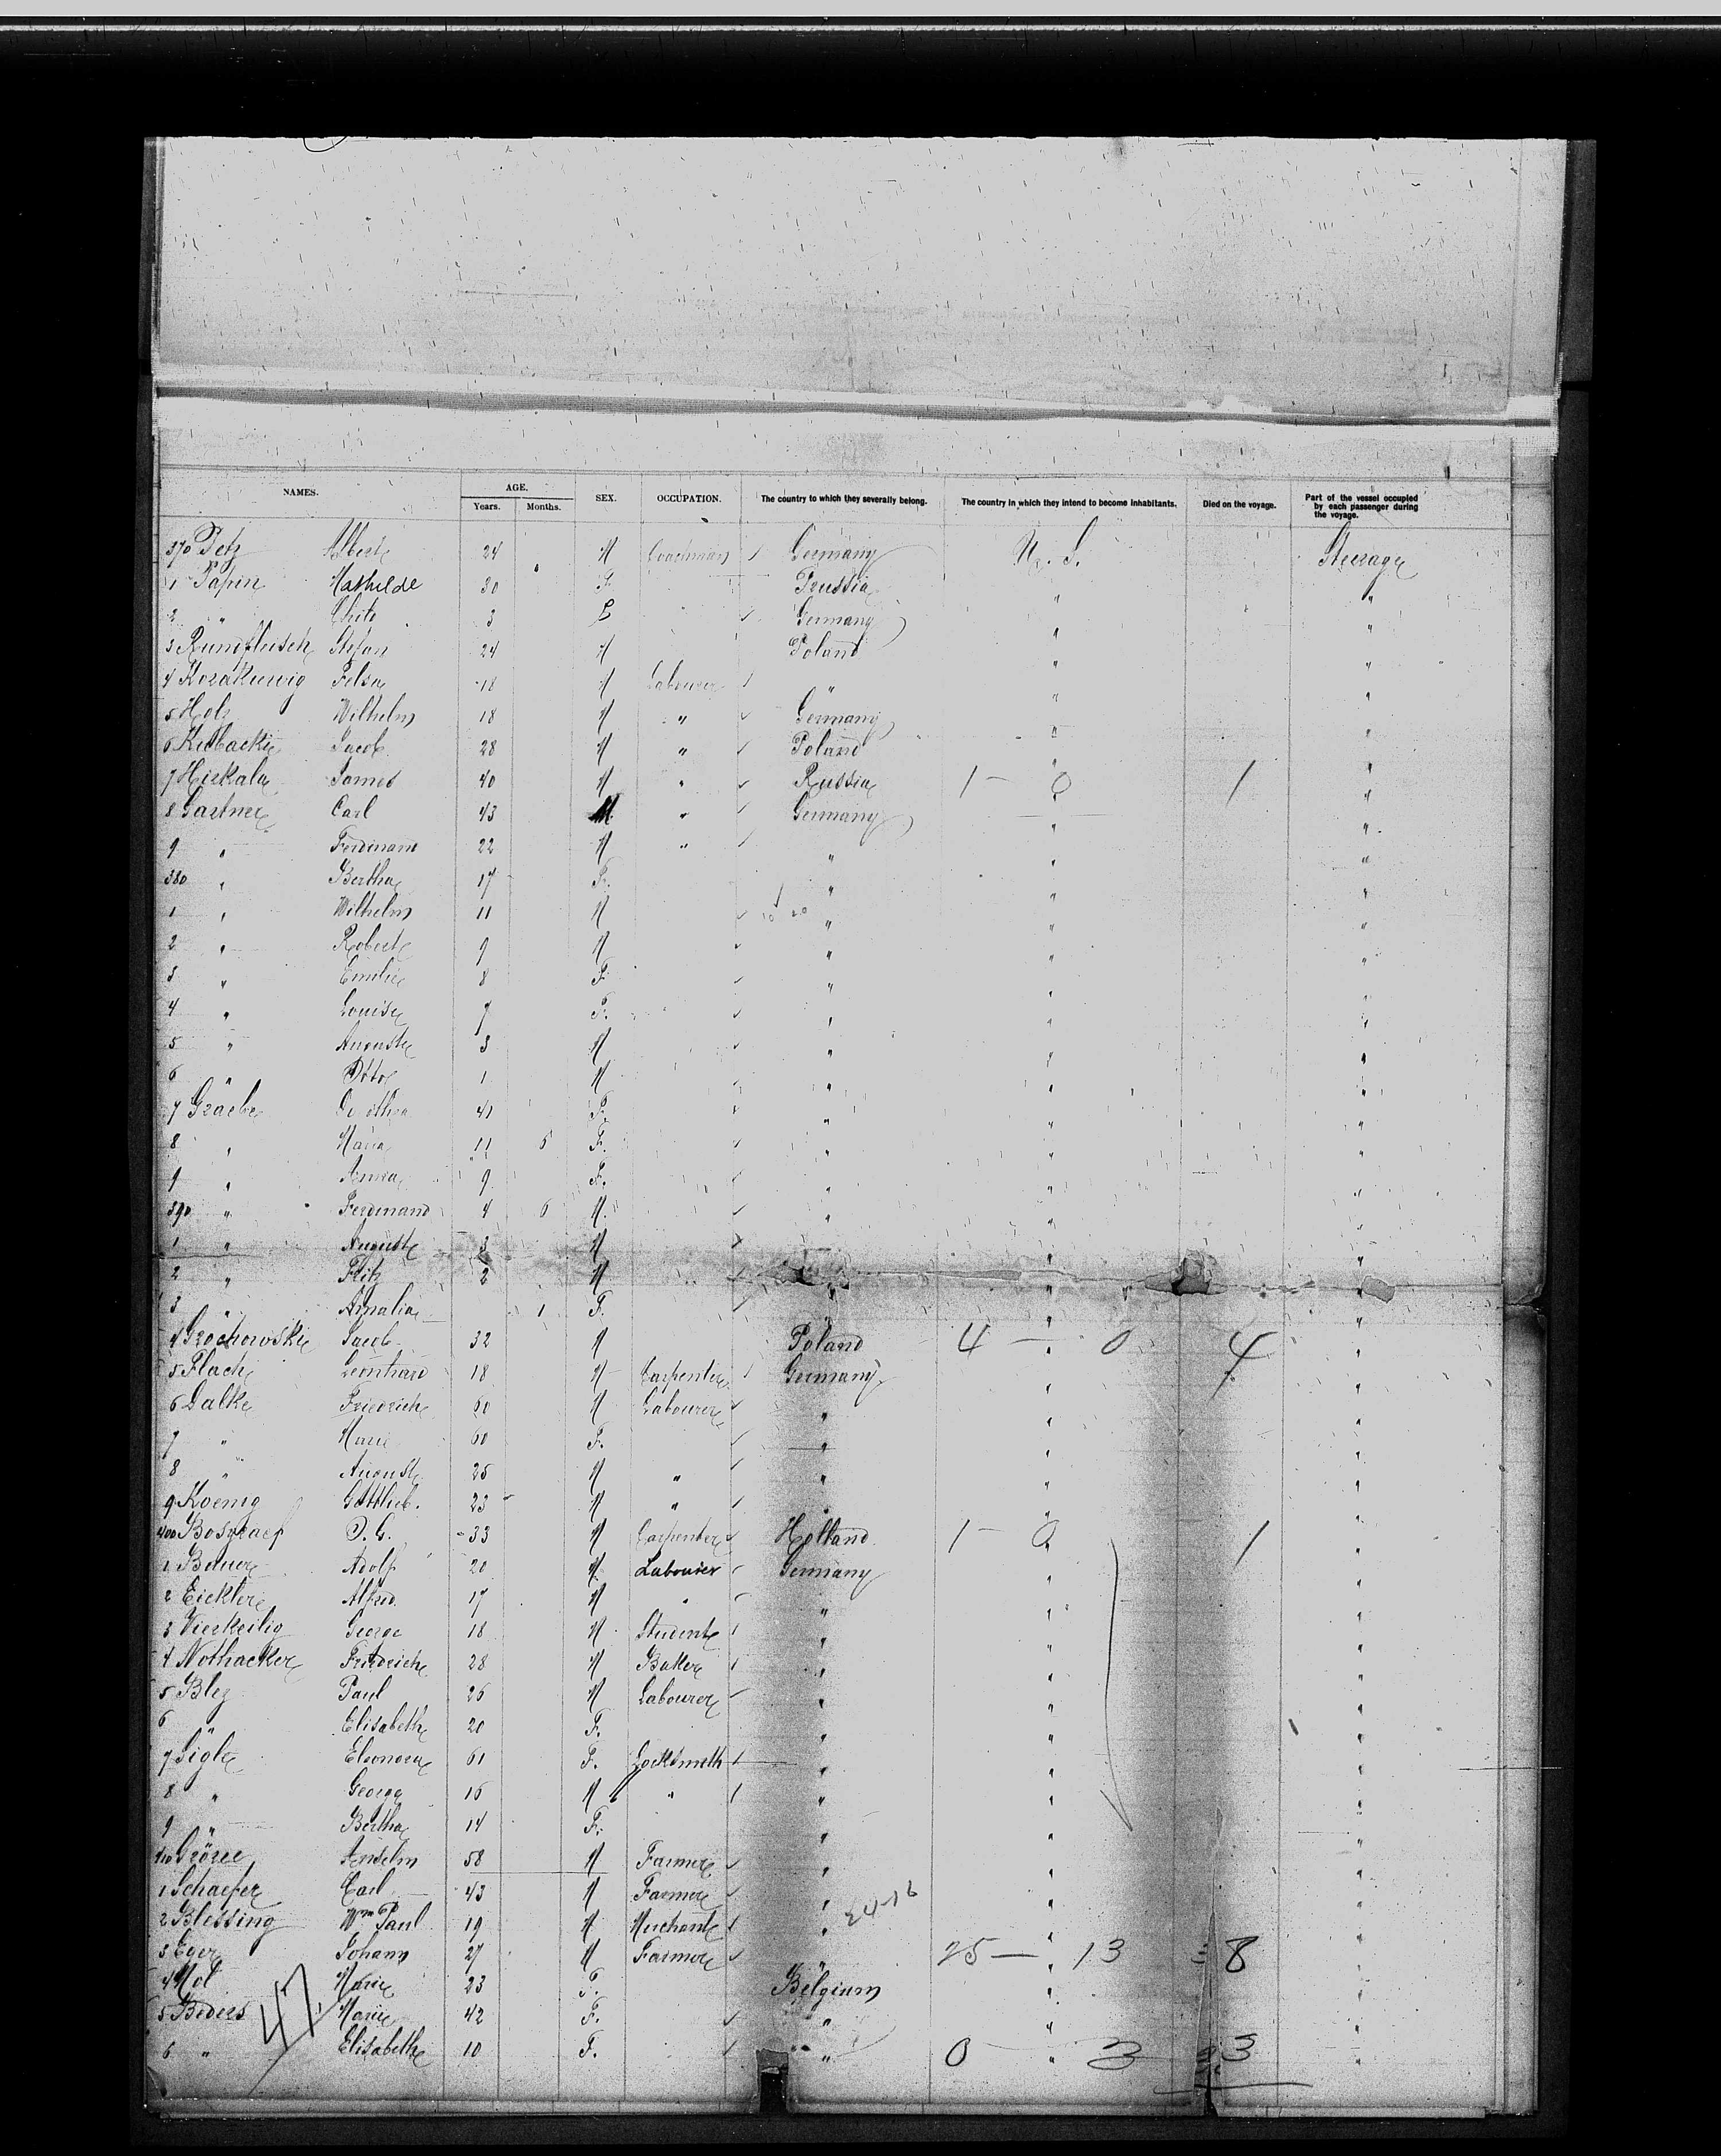 NAMES. AGE. SEX. OCCUPATION. The country to which they severally belong. The country in which they intend to become inhabitants. Died on the voyage. Part of the vessel occupied by each passenger during the voyage.
Years. Months.
370 Petz Albert 24 M Coachman Germany U. S. Steerage
1 Papin Mathilde 30 F Prussia " "
2 " 3 Germany " "
3 Rumpfleisch Stefan 24 M Poland " "
4 18 M Labourer " " "
5 Holz Wilhelm 18 M " Germany " "
6 Kubacki Jacob 28 M " Poland " "
7 James 40 M " Russia 1 — 0 1 "
8 Gartner Carl 43 M " Germany " "
9 " Ferdinand 22 M " " " "
380 " Bertha 17 F. " " "
1 " Wilhelm 11 M " " "
2 " Robert 9 M " " "
3 " Emilie 8 F. " " "
4 " Louise 7 F. " " "
5 " August 3 M " " "
6 " Otto 1 M " " "
7 Graeber Dorothea 41 F. " " "
8 " Maria 11 5 F. " " "
9 " Anna 9 F. " " "
390 " Ferdinand 4 6 M. " " "
1 " August 3 M " "
2 " Fritz 2 M " " "
3 " Amalia 1 F. " " "
4 Grochowski Jacob 32 M Poland 4 — " 0 4 "
5 Flach Leonhard 18 M Carpenter Germany " "
6 Dalke Friedrich 60 M Labourer " " "
7 " Marie 60 F. " " "
8 " August 25 M " " " "
9 Koenig Gottlieb. 23 M " " " "
400 Bosgraaf 33 M Carpenter Holland 1 — 0 1 "
1 Bauer Adolf 20 M. Labourer Germany " "
2 Eickler Alfred 17 M " " " "
3 Vierheilig George 18 M Student " " "
4 Nothacker Friedrich 28 M Baker " " "
5 Bley Paul 26 M Labourer " " "
6 " Elisabeth 20 F. " " "
7 Sigle Eleonora 61 F. Locksmith " " "
8 " George 16 M " " " "
9 " Bertha 14 F. " " "
410 Anselm 58 M Farmer " " "
1 Schaefer Carl 43 M Farmer " " "
2 Blessing Wm Paul 19 M Merchant " "
3 Eger Johann 27 M Farmer " 25 — 13 = 8 "
4 Mol Marie 23 F. Belgium " "
5 Beders Marie 42 F. " " "
6 " Elisabeth 10 F. " 0 " 3 3 "
47